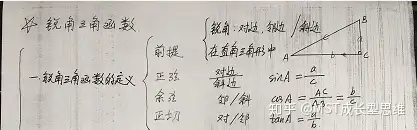 ☆ 锐角三角函数
锐角：对边，邻边／斜边
在直角三角形中
前提
一.锐角三角函数的定义
正弦 对边/斜边 sinA = a/c
余弦 邻/斜 cosA = AC/AA = b/c
正切 对/邻 tanA = a/b
B
c
a
A
b
C
知乎 @MST成长型思维